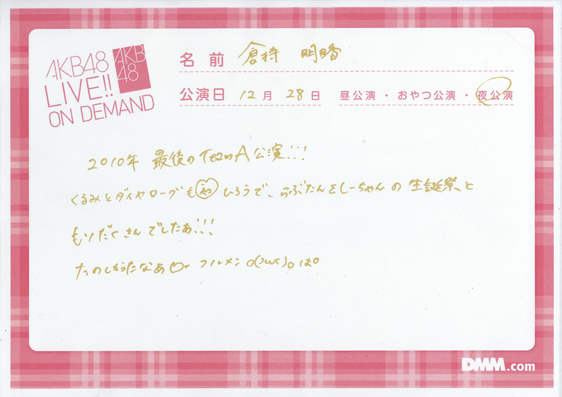 AKB48
LIVE!!
ON DEMAND
AKB
48
名前 倉持 明香
公演日 12月 28日 昼公演・おやつ公演・夜公演
2010年 最後のTeamA公演!!!
くるみとダイヤローグも初ひろうで、らぶたんとしーちゃんの生誕祭、と
もりだくさんでしたぁ!!!
たのしかったなぁ フルメン は
DMM.com